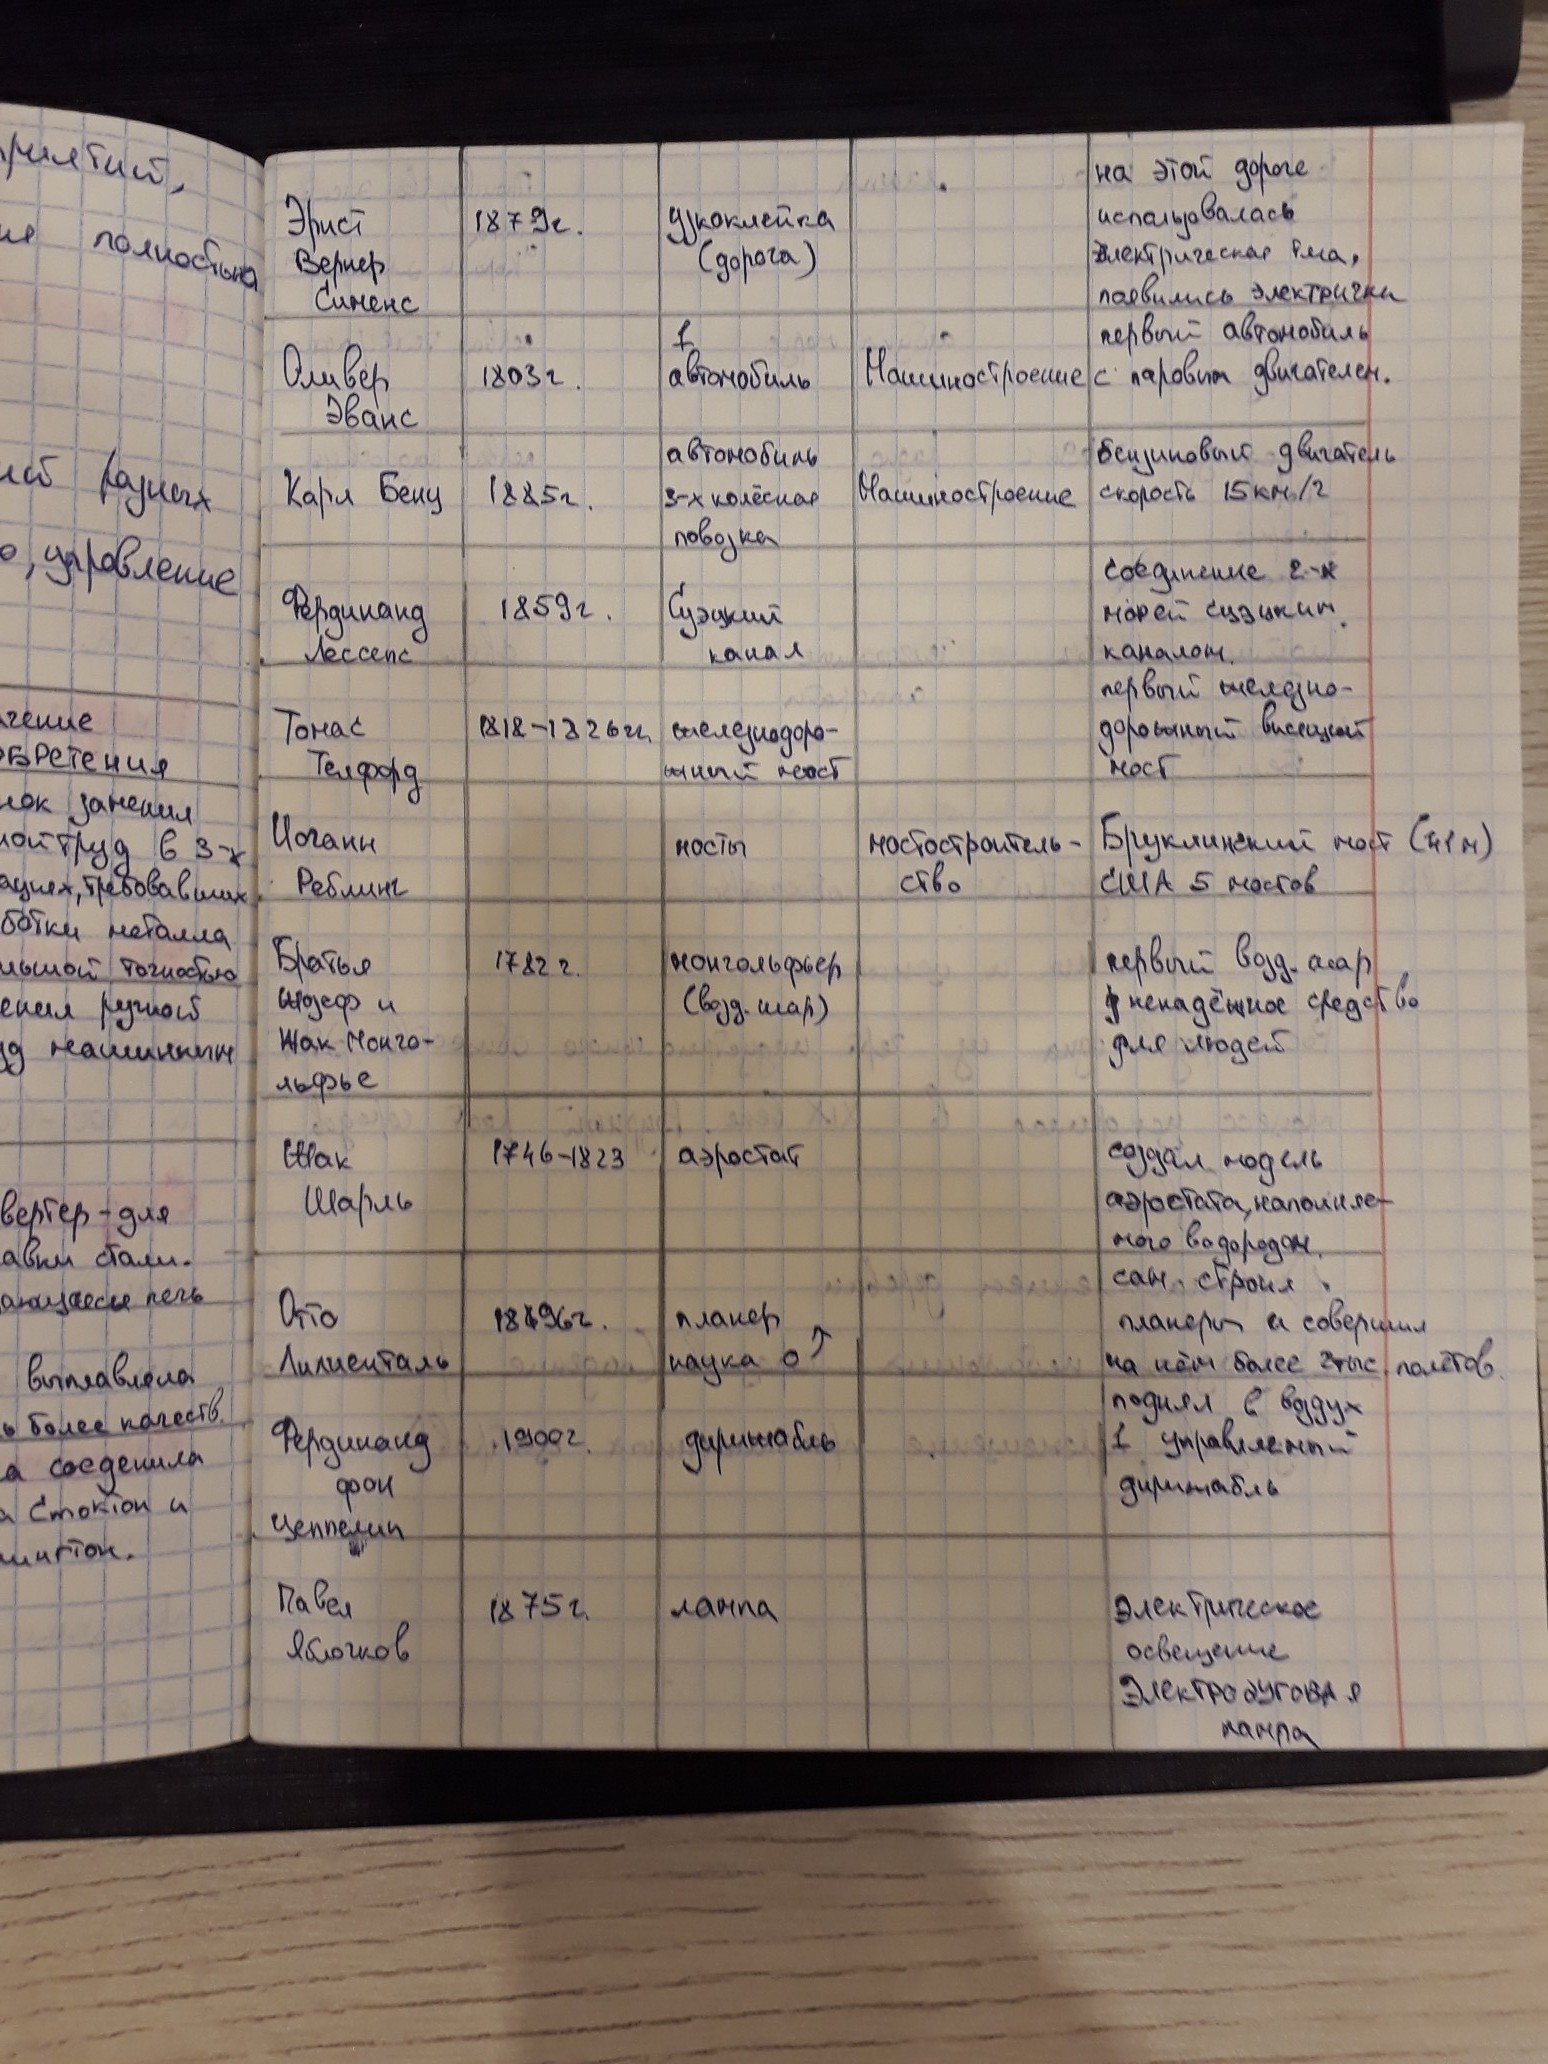 полностью
разных
управление
ОБРЕТЕНИЯ
труд в 3-х
требовавших
ботки металла
точностью
ручной
машинным
вертер - для
авки стали.
печь
выплавлена
более качеств.
соеденила
Стоктон и
Эрнст
Вернер
Сименс
1879г.
узкоклейка
(дорога)
на этой дороге
использовалась
электрическая тяга,
появились электрички
Оливер
Эванс
1803г.
1
автомобиль
Машиностроение
первый автомобиль
с паровым двигателем.
Карл Бенц
1885г.
автомобиль
3-х колёсная
повозка
Машиностроение
бензиновый двигатель
скорость 15км/г
Фердинанд
Лессепс
1859г.
Суэцкий
канал
соединение 2-х
морей суэцким
каналом.
Томас
Телфорд
1818-1826гг.
железнодоро-
жный мост
первый железно-
дорожный висящий
мост
Иоганн
Реблинг
мосты
мостостроитель-
ство
Бруклинский мост
США 5 мостов
Братья
Жозеф и
Жак Монго-
льфье
1782г
монгольфьер
(возд. шар)
первый возд. шар
ненадёжное средство
для людей
Жак
Шарль
1746-1823
аэростат
создал модель
аэростата, наполняе-
мого водородом.
Отто
Лилиенталь
1896г.
планер
наука о ↑
сам строил
планеры и совершил
на нём более 2тыс. полётов.
Фердинанд
фон
Цеппелин
1900г.
дирижабль
поднял в воздух
1 управляемый
дирижабль
Павел
Яблочков
1875г.
лампа
Электрическое
освещение
Электродуговая
лампа